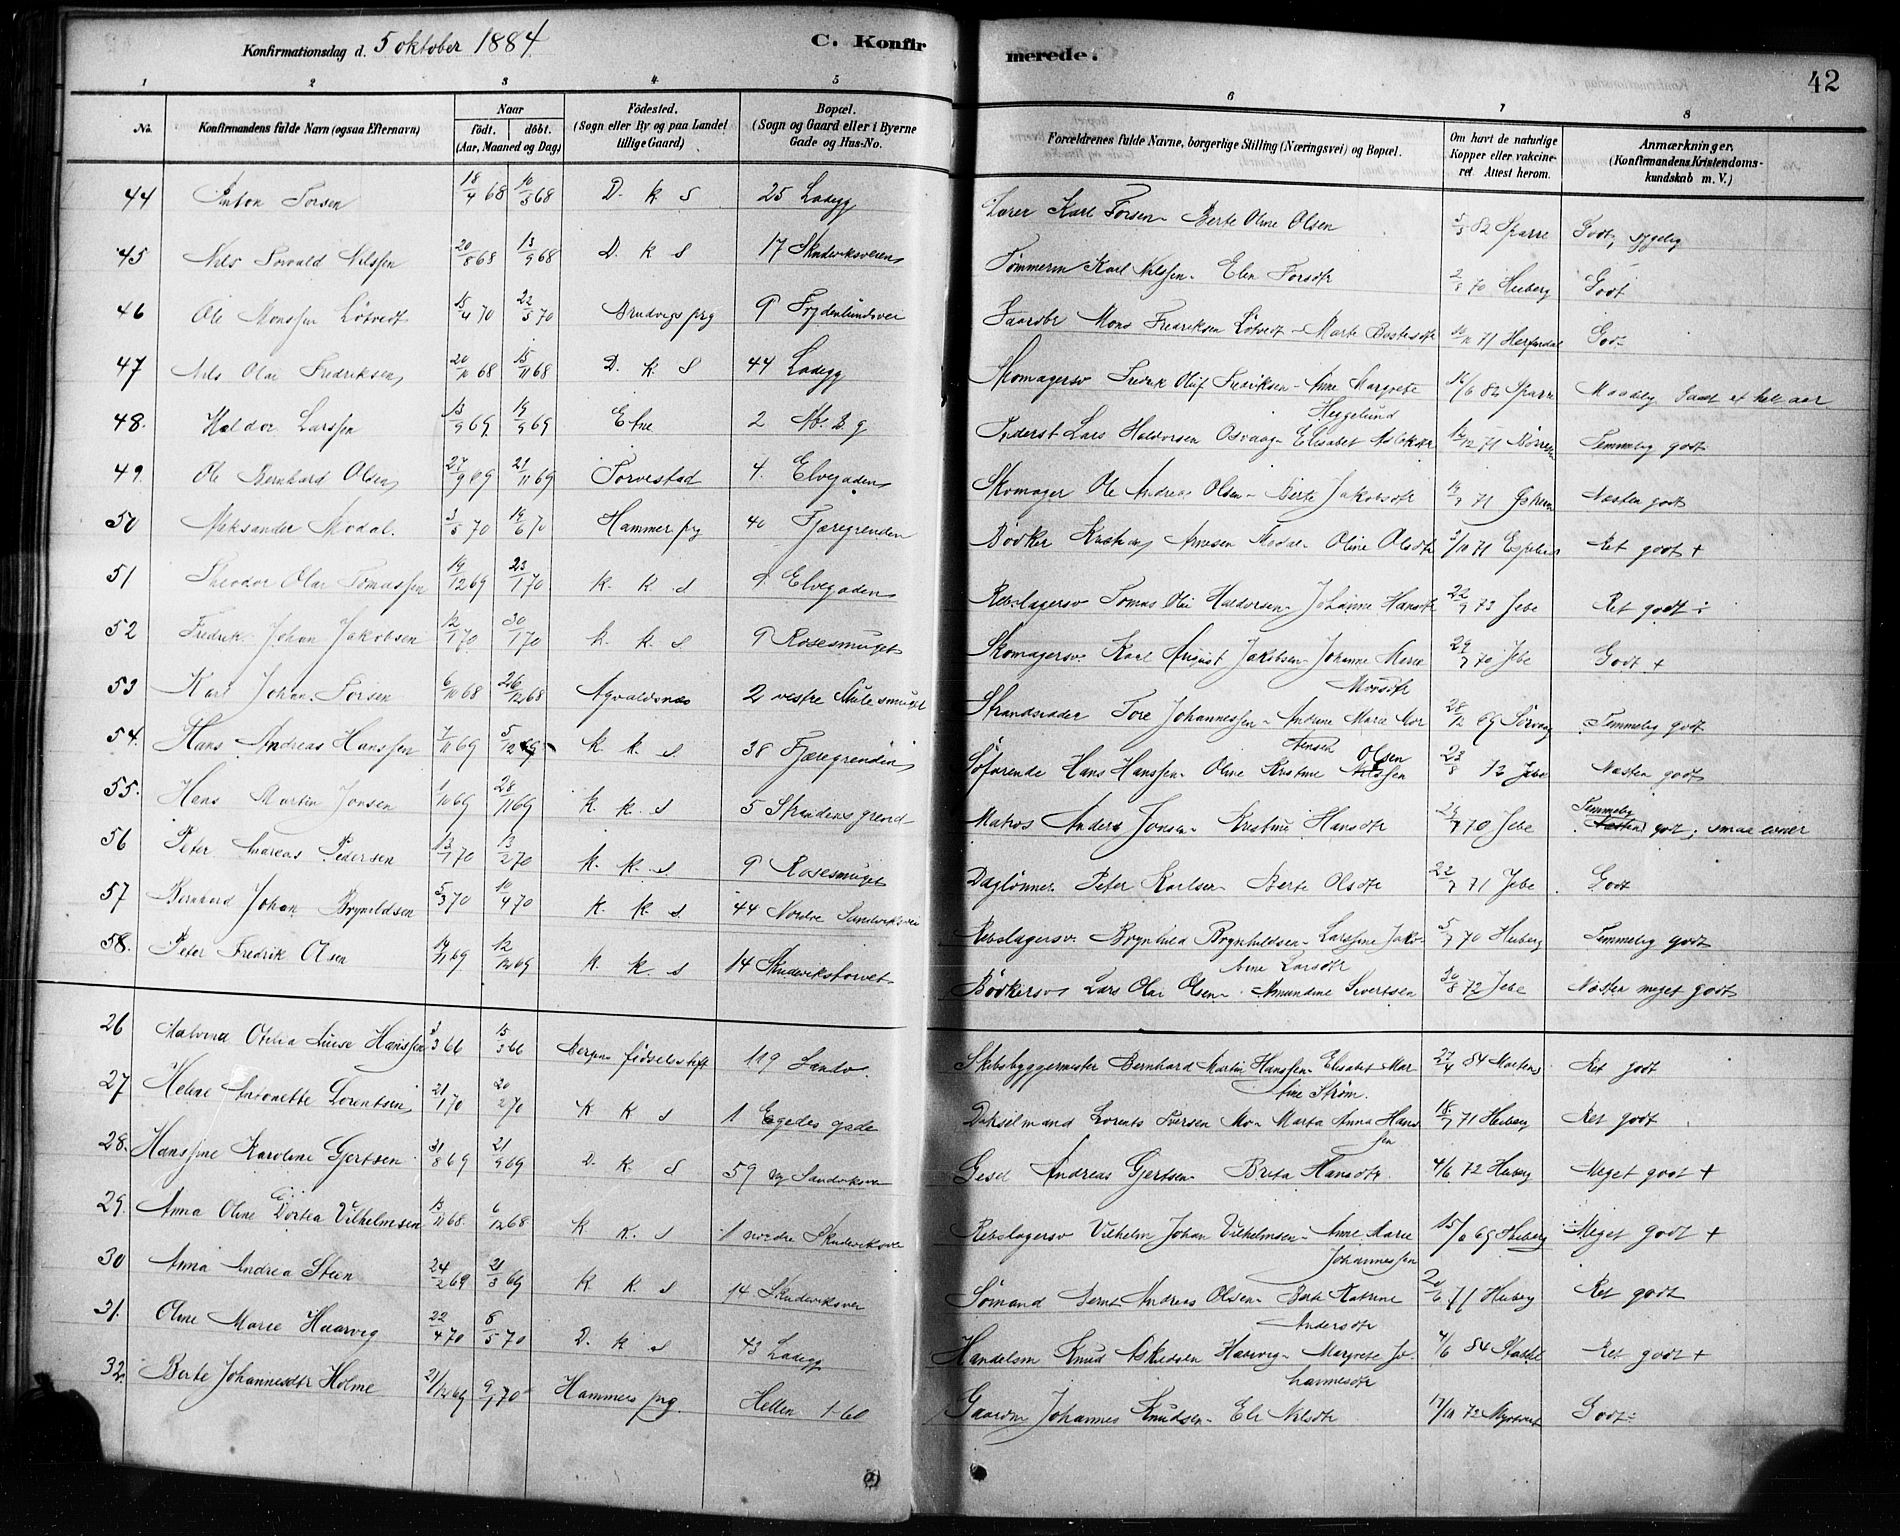 Konfirmationsdag d. 5 oktober 1884
C. Konfirmerede.
42
1 2 3 4 5 6 7 8
No. Konfirmandens fulde Navn (ogsaa Efternavn) Naar født, døbt. (Aar, Maaned og Dag) Fødested. (Sogn eller By og paa Landet tillige Gaard) Bopæl. (Sogn og Gaard eller i Byerne Gade og Hus-No. Forældrenes fulde Navne, borgerlige Stilling (Næringsvei) og Bopæl. Om havt de naturlige Kopper eller vakcineret Attest herom. Anmærkninger. (Konfirmandens Kristendomskundskab m. V.)
44 Anton Torsen 18/4 68 D. k s 25 Ladegg Karl Torsen - Berte Oline Olsen 82 Sparre Godt, sygelig
45 Nils Torvald Nilssen 20/8 68 13/9 68 D. k s 17 Skudeviksveien Tømmerm Karl Nilssen - Elen Torsdtr 70 Heiberg Godt
46 Ole Monssen Løtvedt 15/4 70 22/5 70 9 Frydenlundsvei Gaardbr Mons Fredriksen Løtvedt - Marte 71 Godt
47 Nils Olai Fredriksen 68 15/11 68 D. k. s 44 Ladegg Skomagersv Fredrik Oluf Fredriksen - Ane Margrete Heggelund 82 Sparre
48. Haldor Larssen 69 19/9 69 Etne 2 Lars Haldorsen - Elisabet 12/12 71 Temmelig godt
49. Ole Bernhard Olsen 27/9 69 21/11 69 Torvestad 4. Elvegaden Skomager Ole Andreas Olsen - Berte Jakobsdtr 71 Næsten godt
50 Aleksander Modal. 3/5 70 19/6 70 Hammer prg 40 Fjæregrenden Bødker Arnesen Modal - Oline Olsdtr 71 Ret godt +
51 Theodor Olai Tomassen 19/12 69 23/1 70 k. k s Elvegaden Rebslagersv Tomas Olai Haldorsen - Johanne Hansdtr 22/9 73 Jebe Ret godt ÷
52 Fredrik Johan Jakobsen 12/1 70 30/1 70 k. k s 9 Rosesmuget Skomagersv. Karl August Jakobsen - Johanne Marie Monsdtr 29/7 70 Jebe Godt +
53 Karl Johan Torsen 6/10 68 26/12 68 Agvaldsnes 2 vestre Mulesmuget Strandsidder Tore Johannessen - Andrine Marie Mortensen 28/12 69 Temmelig godt
54. Hans Andreas Hanssen 7/11 69 5/12 69 k. k s 38 Fjæregrenden Søfarende Hans Hanssen - Oline Kristine Olsen 23/8 Jebe Næsten godt
55. Hans Martin Jonsen 69 28/11 69 k. k s 5 Strandens grend Matros Anders Jonsen - Kristine Hansdtr 70 Jebe Temmelig godt; smaa evner
56 Peter Andreas Pedersen 13/1 70 13/2 70 k. k. s. 9 Rosesmuget Daglønner Peter Karlsen - Berte Olsdtr 22/7 71 Jebe Godt
57 Bernhard Johan Brynildsen 5/3 70 10/4 70 k. k. s. 44 Nordre Sandviksvei Rebslagersv. Brynhild Brynhildsen - Larssine Jakobine Larsdtr 5/7 70 Heiberg Temmelig godt
58. Peter Fredrik Olsen 14/11 69 12/12 69 k. k s 14 Skudevikstorvet Bødkersv Lars Olai Olsen - Amundine Sivertsen 30/8 72 Jebe Næsten meget godt
26 Malvina Otilia Luise Hanssen 3/3 66 15/3 66 Bergens fødselsstift 119 Sandv. Skibsbyggermester Bernhard Martin Hanssen - Elisabet Martine Strøm. 27/4 84 Martens Ret godt
27 Helene Antonette Lorentsen 21/1 70 20/2 70 k k s 1 Egedes gade Lorents Iversen Mo - Marta Anna Hanssen 18/7 71 Heiberg Ret godt
28. Hanssine Karoline Gjertsen 31/8 69 21/9 69 D. k. s 59 Sandviksvei Andreas Gjertsen - Brita Hansdtr 4/6 72 Heiberg Meget godt +
29. Anna Oline Dortea Vilhelmsen 15/11 68. 6/12 68 k k. s 1 nordre Skudeviksvei Rebslagersv Vilhelm Johan Vilhelmsen - Anne Marie Johannessen 69 Heiberg Meget godt +
30 Anna Andrea Steen 24/2 69 21/3 69 k k. s 14 Skudeviksvei Sømand Bernt Andreas Olsen - Berte Katrine Andersdtr 20/6 71 Heiberg Ret godt
31. Oline Marie Haarvig 22/4 70 8/5 70 D. k s 43 Ladegg Handelsm Knud Askildsen Haarvig - Margrete Johannesdtr 4/6 84 Ret godt +
32. Berte Johannesdtr Holme 21/12 69 9/1 70 Hammers prg. Hellen 1-60 Gaardm Johannes Knudsen - Eli Nilsdtr 17/10 72 Godt ÷